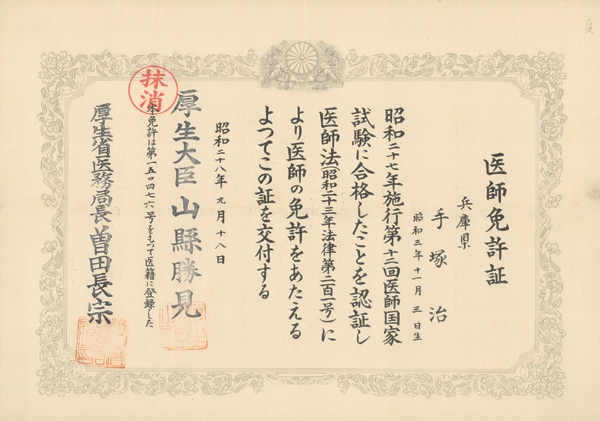 医師免許証
兵庫県
手塚治
昭和三年十一月三日生
昭和二十七年施行第十三回医師国家
試験に合格したことを認証し
医師法(昭和二十三年法律第二百一号)に
より医師の免許をあたえる
よつてこの証を交付する
昭和二十八年九月十八日
厚生大臣山縣勝見
本免許は第一五〇四七六号をもつて医籍に登録した
厚生省医務局長曽田長宗
抹消